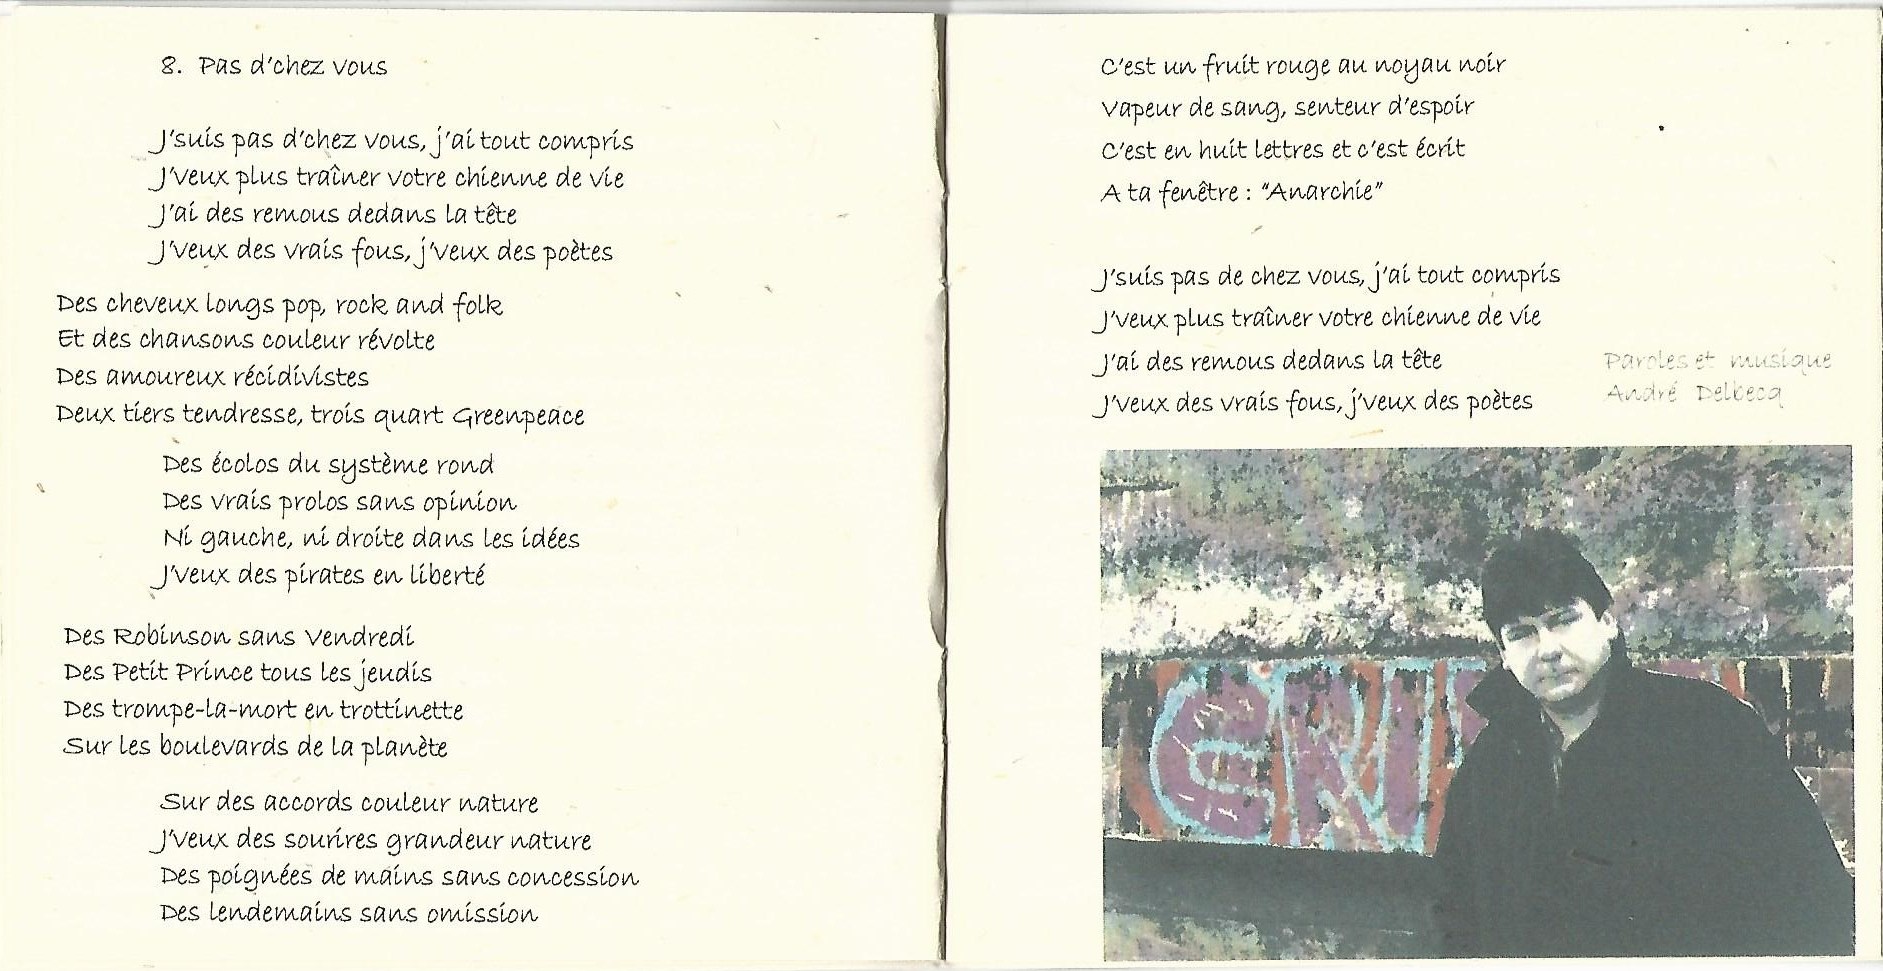 8. Pas d'chez vous
J'suis pas d'chez vous, j'ai tout compris
J'veux plus traîner votre chienne de vie
J'ai des remous dedans la tête
J'veux des vrais fous, j'veux des poètes
Des cheveux longs pop, rock and folk
Et des chansons couleur révolte
Des amoureux récidivistes
Deux tiers tendresse, trois quart Greenpeace
Des écolos du système rond
Des vrais prolos sans opinion
Ni gauche, ni droite dans les idées
J'veux des pirates en liberté
Des Robinson sans Vendredi
Des Petit Prince tous les jeudis
Des trompe-la-mort en trottinette
Sur les boulevards de la planète
Sur des accords couleur nature
J'veux des sourires grandeur nature
Des poignées de mains sans concession
Des lendemains sans omission
C'est un fruit rouge au noyau noir
Vapeur de sang, senteur d'espoir
C'est en huit lettres et c'est écrit
A ta fenêtre : "Anarchie"
J'suis pas de chez vous, j'ai tout compris
J'veux plus traîner votre chienne de vie
J'ai des remous dedans la tête
J'veux des vrais fous, j'veux des poètes
Paroles et musique
André Delbecq